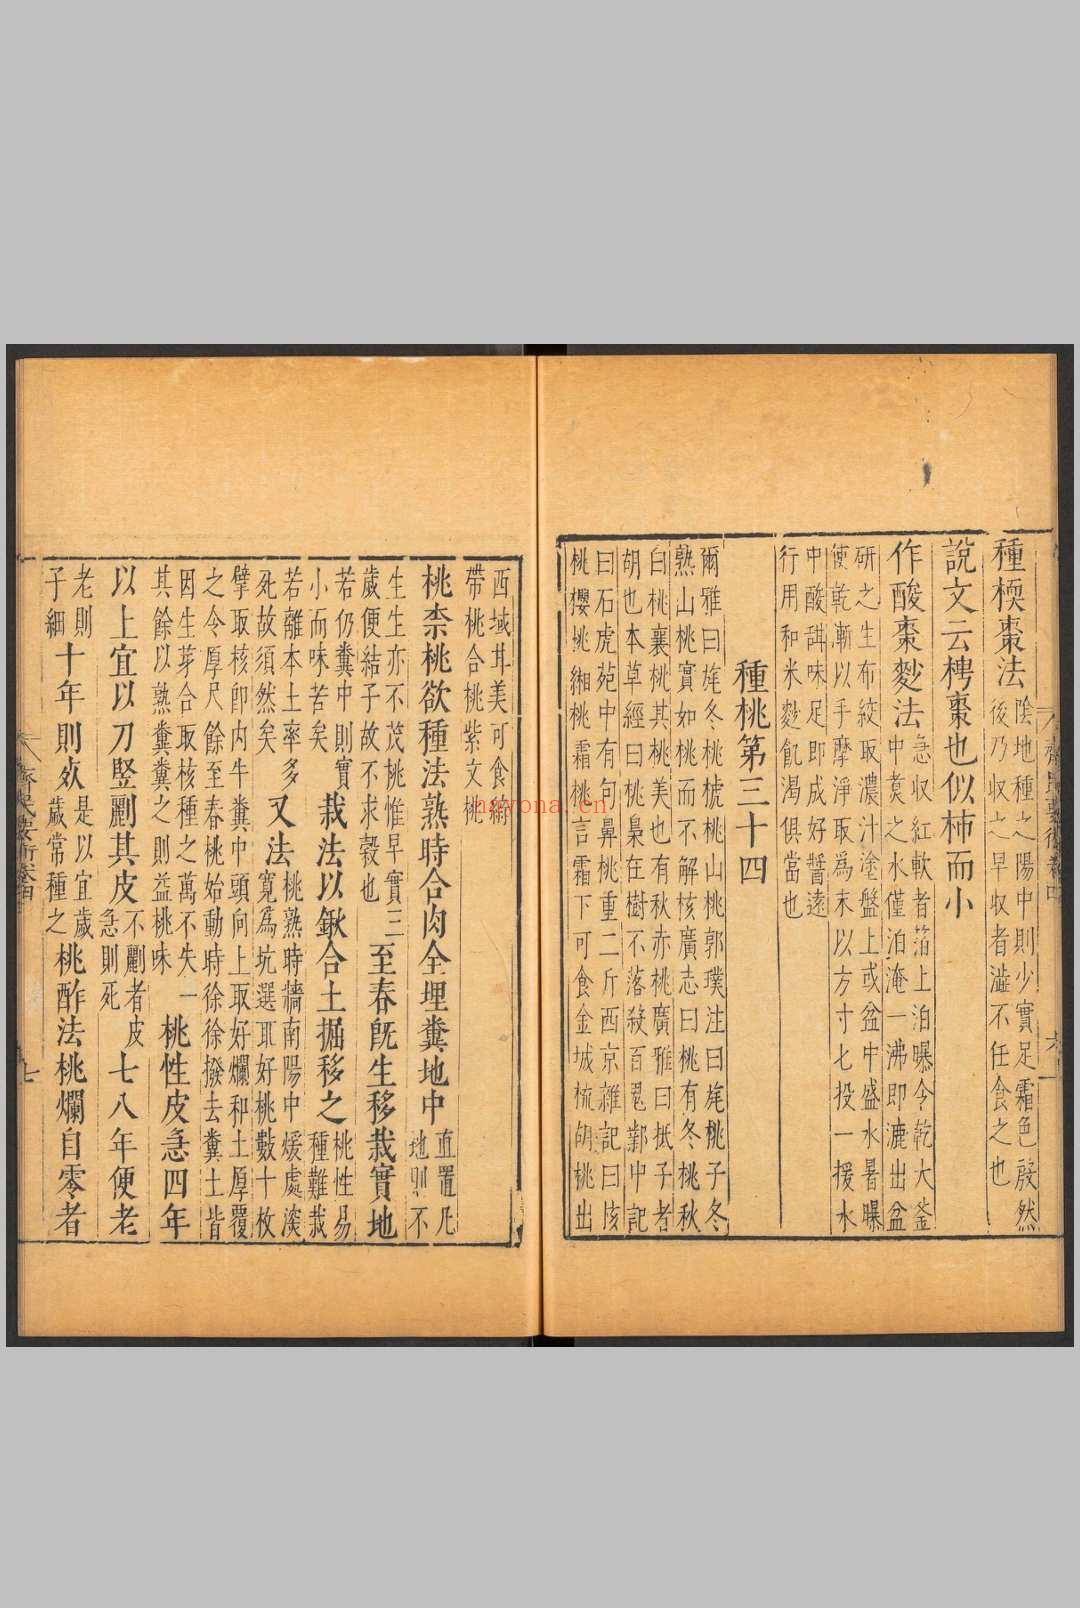 種楔棗法陰地種之陽中則少實足霜色殷然
後乃收之早収者澁不任食之也
說文云梬棗也似柿而小
作酸棗麨法急収紅軟者箔上泊曝令乾大釜
中煑之水僅泊淹一沸即漉出盆
研之生布絞取濃汁塗盤上或盆中盛水暑曝
使乾漸以手摩淨取爲末以方寸匕投一援水
中酸調味足即成好醬遠
行用和米麨飢渴俱當也
種桃第三十四
爾雅曰旄冬桃榹山桃郭璞注曰旄桃子冬
熟山桃實如桃而不解核廣志曰桃有冬桃秋
白桃襄桃其桃美也有秋赤桃廣雅曰抵子者
胡也本草經曰桃梟在樹不落殺百鬼鄴中記
曰石虎苑中有句鼻桃重二斤西京雜記曰核
桃櫻桃緗桃霜桃言霜下可食金城桃胡桃出
西域甘美可食綺
帶桃含桃紫文桃
桃柰桃欲種法熟時合肉全埋糞地中直置凡
地則不
生生亦不茂桃惟早實三
歲便結子故不求穀也
至春旣生移栽實地
若仍糞中則實
小而味苦矣
栽法以鍬合土掘移之桃性易
種難栽
若離本土率多
死故須然矣
又法桃熟時牆南陽中煖處深
寛爲坑選取好桃數十枚
擘取核卽內牛糞中頭向上取好爛和土厚覆
之令厚尺餘至春桃始動時徐徐撥去糞土皆
因生芽合取核種之萬不失一
其餘以熟糞糞之則益桃味
桃性皮急四年
以上宜以刀竪劚其皮不劚者皮
急則死
七八年便老
老則
子細
十年則死是以宜歲
歲常種之
桃酢法桃爛自零者
齊民要術卷四
七
hayona.cn